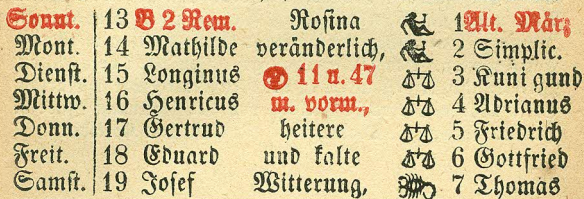 Sonnt. 13 B 2 Rem. Rosina 1 Alt. März
Mont. 14 Mathilde veränderlich, 2 Simplic.
Dienst. 15 Longinus 11 u. 47 3 Kunigund
Mittw. 16 Henricus m. vorm., 4 Adrianus
Donn. 17 Gertrud heitere 5 Friedrich
Freit. 18 Eduard und kalte 6 Gottfried
Samst. 19 Josef Witterung, 7 Thomas